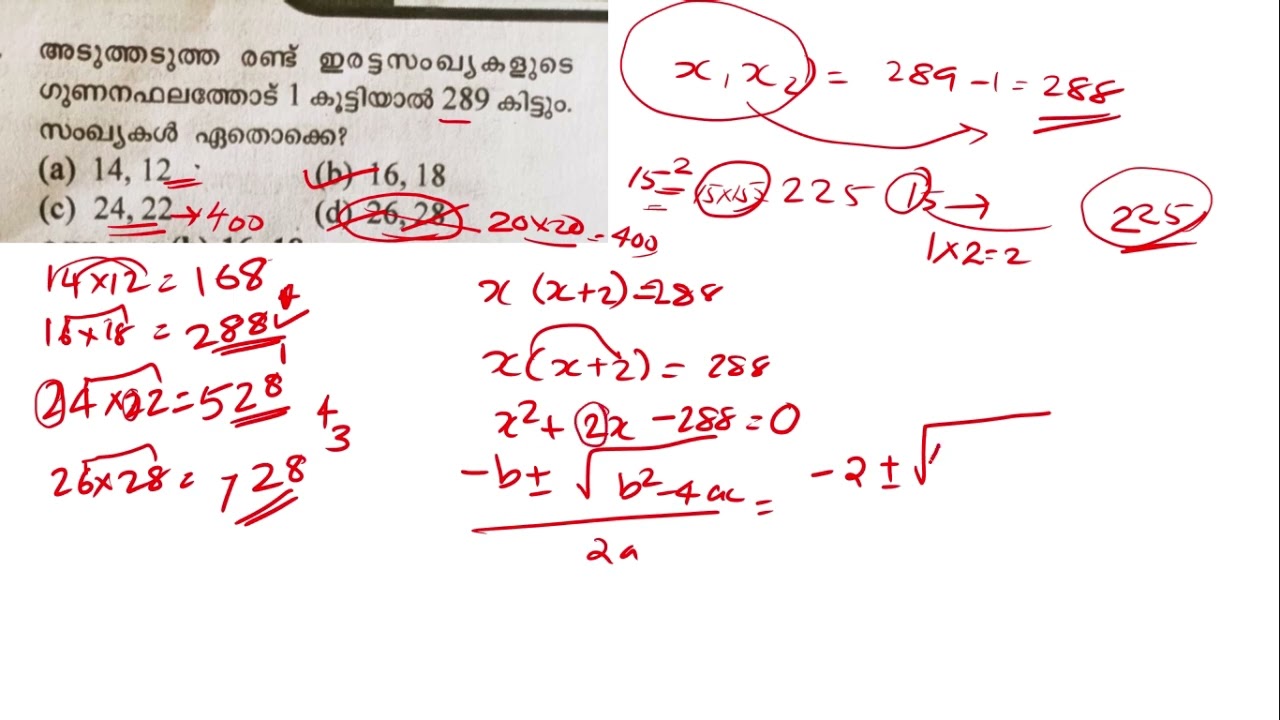 അടുത്തടുത്ത രണ്ട് ഇരട്ടസംഖ്യകളുടെ
ഗുണനഫലത്തോട് 1 കൂട്ടിയാൽ 289 കിട്ടും.
സംഖ്യകൾ ഏതൊക്കെ?
(a) 14, 12 (b) 16, 18
(c) 24, 22 → 400 (d) 26, 28 20×20 = 400
x, x2) = 289 - 1 = 288
15² 15×15 = 225 15 → 225
1×2=2
14×12 = 168
16×18 = 288 ✓
1
24×22 = 528
4
3
26×28 = 728
x (x+2) = 288
x (x+2) = 288
x² + 2x - 288 = 0
-b ± √b² - 4ac = -2 ± √
2a